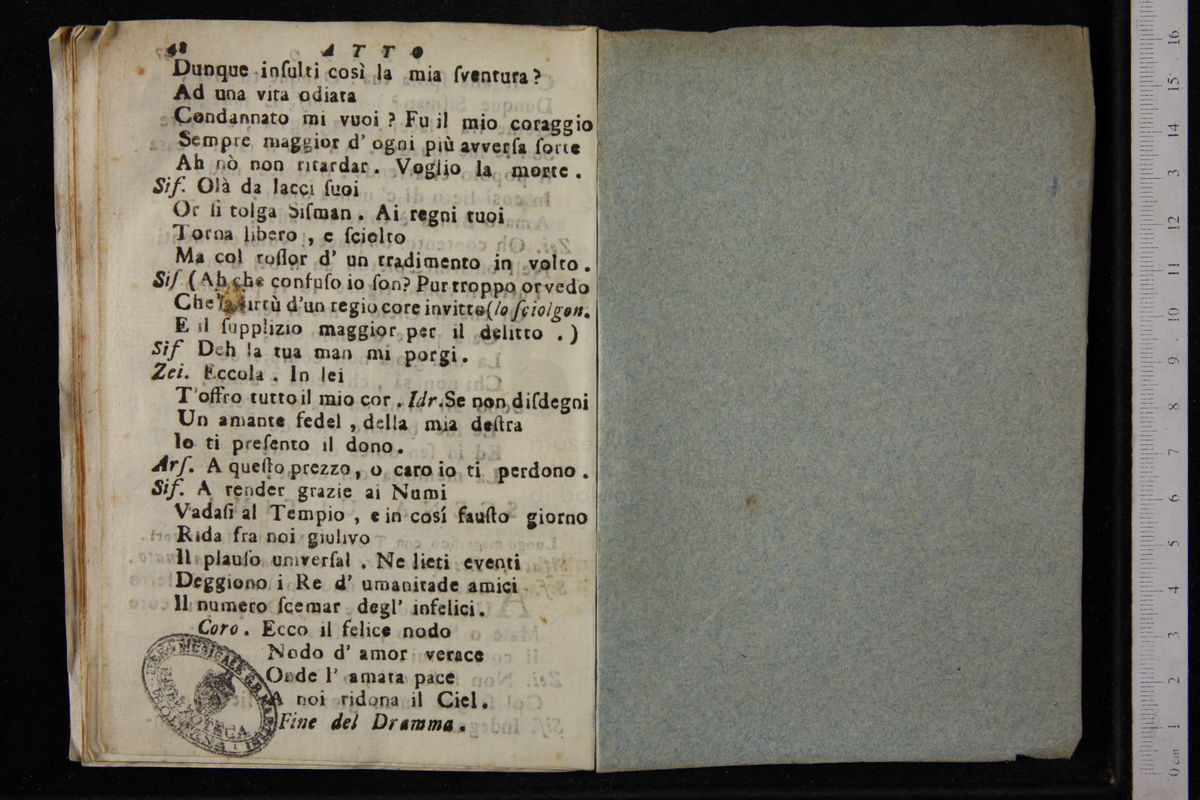 48 ATTO
Dunque inſulti così la mia ſventura?
Ad una vita odiata
Condannato mi vuoi? Fu il mio coraggio
Sempre maggior d' ogni più avverſa ſorte
Ah nò non ritardar. Voglio la morte.
Siſ. Olà da lacci ſuoi
Or ſi tolga Siſman. Ai regni tuoi
Torna libero, e ſciolto
Ma col roſſor d' un tradimento in volto.
Siſ (Ah che confuſo io ſon? Pur troppo or vedo
Che la virtù d'un regio core invitto (lo ſciolgon.
E il ſupplizio maggior per il delitto.)
Siſ Deh la tua man mi porgi.
Zei. Eccola. In lei
T'offro tutto il mio cor. Idr. Se non diſdegni
Un amante fedel, della mia deſtra
Io ti preſento il dono.
Arſ. A queſto prezzo, o caro io ti perdono.
Siſ. A render grazie ai Numi
Vadaſi al Tempio, e in cosí fauſto giorno
Rida fra noi giulivo
Il plauſo univerſal. Ne lieti eventi
Deggiono i Re d' umanitade amici
Il numero ſcemar degl' infelici.
Coro. Ecco il felice nodo
Nodo d' amor verace
Onde l' amata pace
A noi ridona il Ciel.
Fine del Dramma.
BIBLIOTECA
0 cm 1 2 3 4 5 6 7 8 9 10 11 12 3 14 15 16